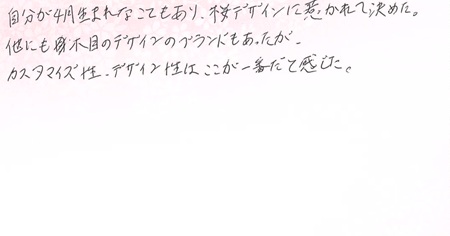 自分が4月生まれなこともあり、桜デザインに惹かれて決めた。
他にも木目のデザインのブランドもあったが、
カスタマイズ性、デザイン性はここが一番だと感じた。